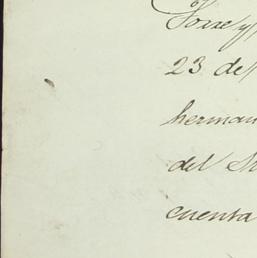 Torre y
23 de
herman
del Sr
cuenta